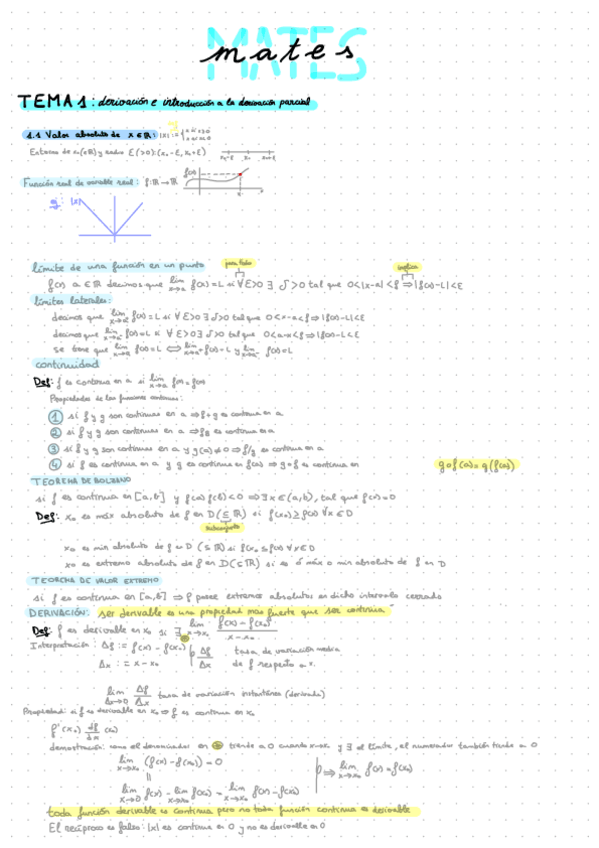 MATES
mates
TEMA 1: derivación e introducción a la derivación parcial
1.1 Valor absoluto de x ∈ ℝ: |x| :=
Entorno de x₀(∈ℝ) y radio ε(>0): (x₀-ε, x₀+ε) x₀-ε x₀ x₀+ε
Función real de variable real: f: ℝ → ℝ f(x) x
g: |x|
límite de una función en un punto para todo implica
f(x) a ∈ ℝ decimos que lim x→a f(x) = L si ∀ε>0 ∃ δ>0 tal que 0<|x-a|<δ ⇒ |f(x)-L|<ε
límites laterales:
decimos que lim x→a⁺ f(x) = L si ∀ ε>0 ∃ δ>0 tal que 0<x-a<δ ⇒ |f(x)-L|<ε
decimos que lim x→a⁻ f(x) = L si ∀ ε>0 ∃ δ>0 tal que 0<a-x<δ ⇒ |f(x)-L|<ε
se tiene que lim x→a f(x) = L ⟺ lim x→a⁺ f(x) = L y lim x→a⁻ f(x) = L
continuidad
Def: f es continua en a si lim x→a f(x) = f(a)
Propiedades de las funciones continuas:
1 si f y g son continuas en a ⇒ f+g es continua en a
2 si f y g son continuas en a ⇒ fg es continua en a
3 si f y g son continuas en a y g(a)≠0 ⇒ f/g es continua en a
4 si f es continua en a y g es continua en f(a) ⇒ g∘f es continua en g∘f(a) = g(f(a))
TEOREMA DE BOLZANO
si f es continua en [a,b] y f(a)f(b)<0 ⇒ ∃ x ∈ (a,b), tal que f(x)=0
Def: x₀ es máx absoluto de f en D(⊆ℝ) si f(x₀) ≥ f(x) ∀x∈D
subconjunto
x₀ es min absoluto de f en D (⊆ℝ) si f(x₀) ≤ f(x) ∀x∈D
x₀ es extremo absoluto de f en D(⊆ℝ) si es ó máx o min absoluto de f en D
TEOREMA DE VALOR EXTREMO
si f es continua en [a,b] ⇒ f posee extremos absolutos en dicho intervalo cerrado
DERIVACIÓN: ser derivable es una propiedad mas fuerte que ser continua
Def: f es derivable en x₀ si ∃ lim x→x₀ f(x) - f(x₀) / x - x₀
Interpretación: Δf := f(x) - f(x₀) Δf/Δx tasa de variación media
Δx := x - x₀ de f respecto a x.
lim Δx→0 Δf/Δx tasa de variación instantánea (derivada)
Propiedad: si f es derivable en x₀ ⇒ f es continua en x₀
f'(x₀) df/dx (x₀)
demostración: como el denominador en tiende a 0 cuando x→x₀ y ∃ el límite, el numerador también tiende a 0
lim x→x₀ (f(x) - f(x₀)) = 0 ⇒ lim x→x₀ f(x) = f(x₀)
lim x→x₀ f(x) - lim x→x₀ f(x₀) = lim x→x₀ f(x) - f(x₀)
toda función derivable es continua pero no toda función continua es derivable
El recíproco es falso: |x| es continua en 0 y no es derivable en 0